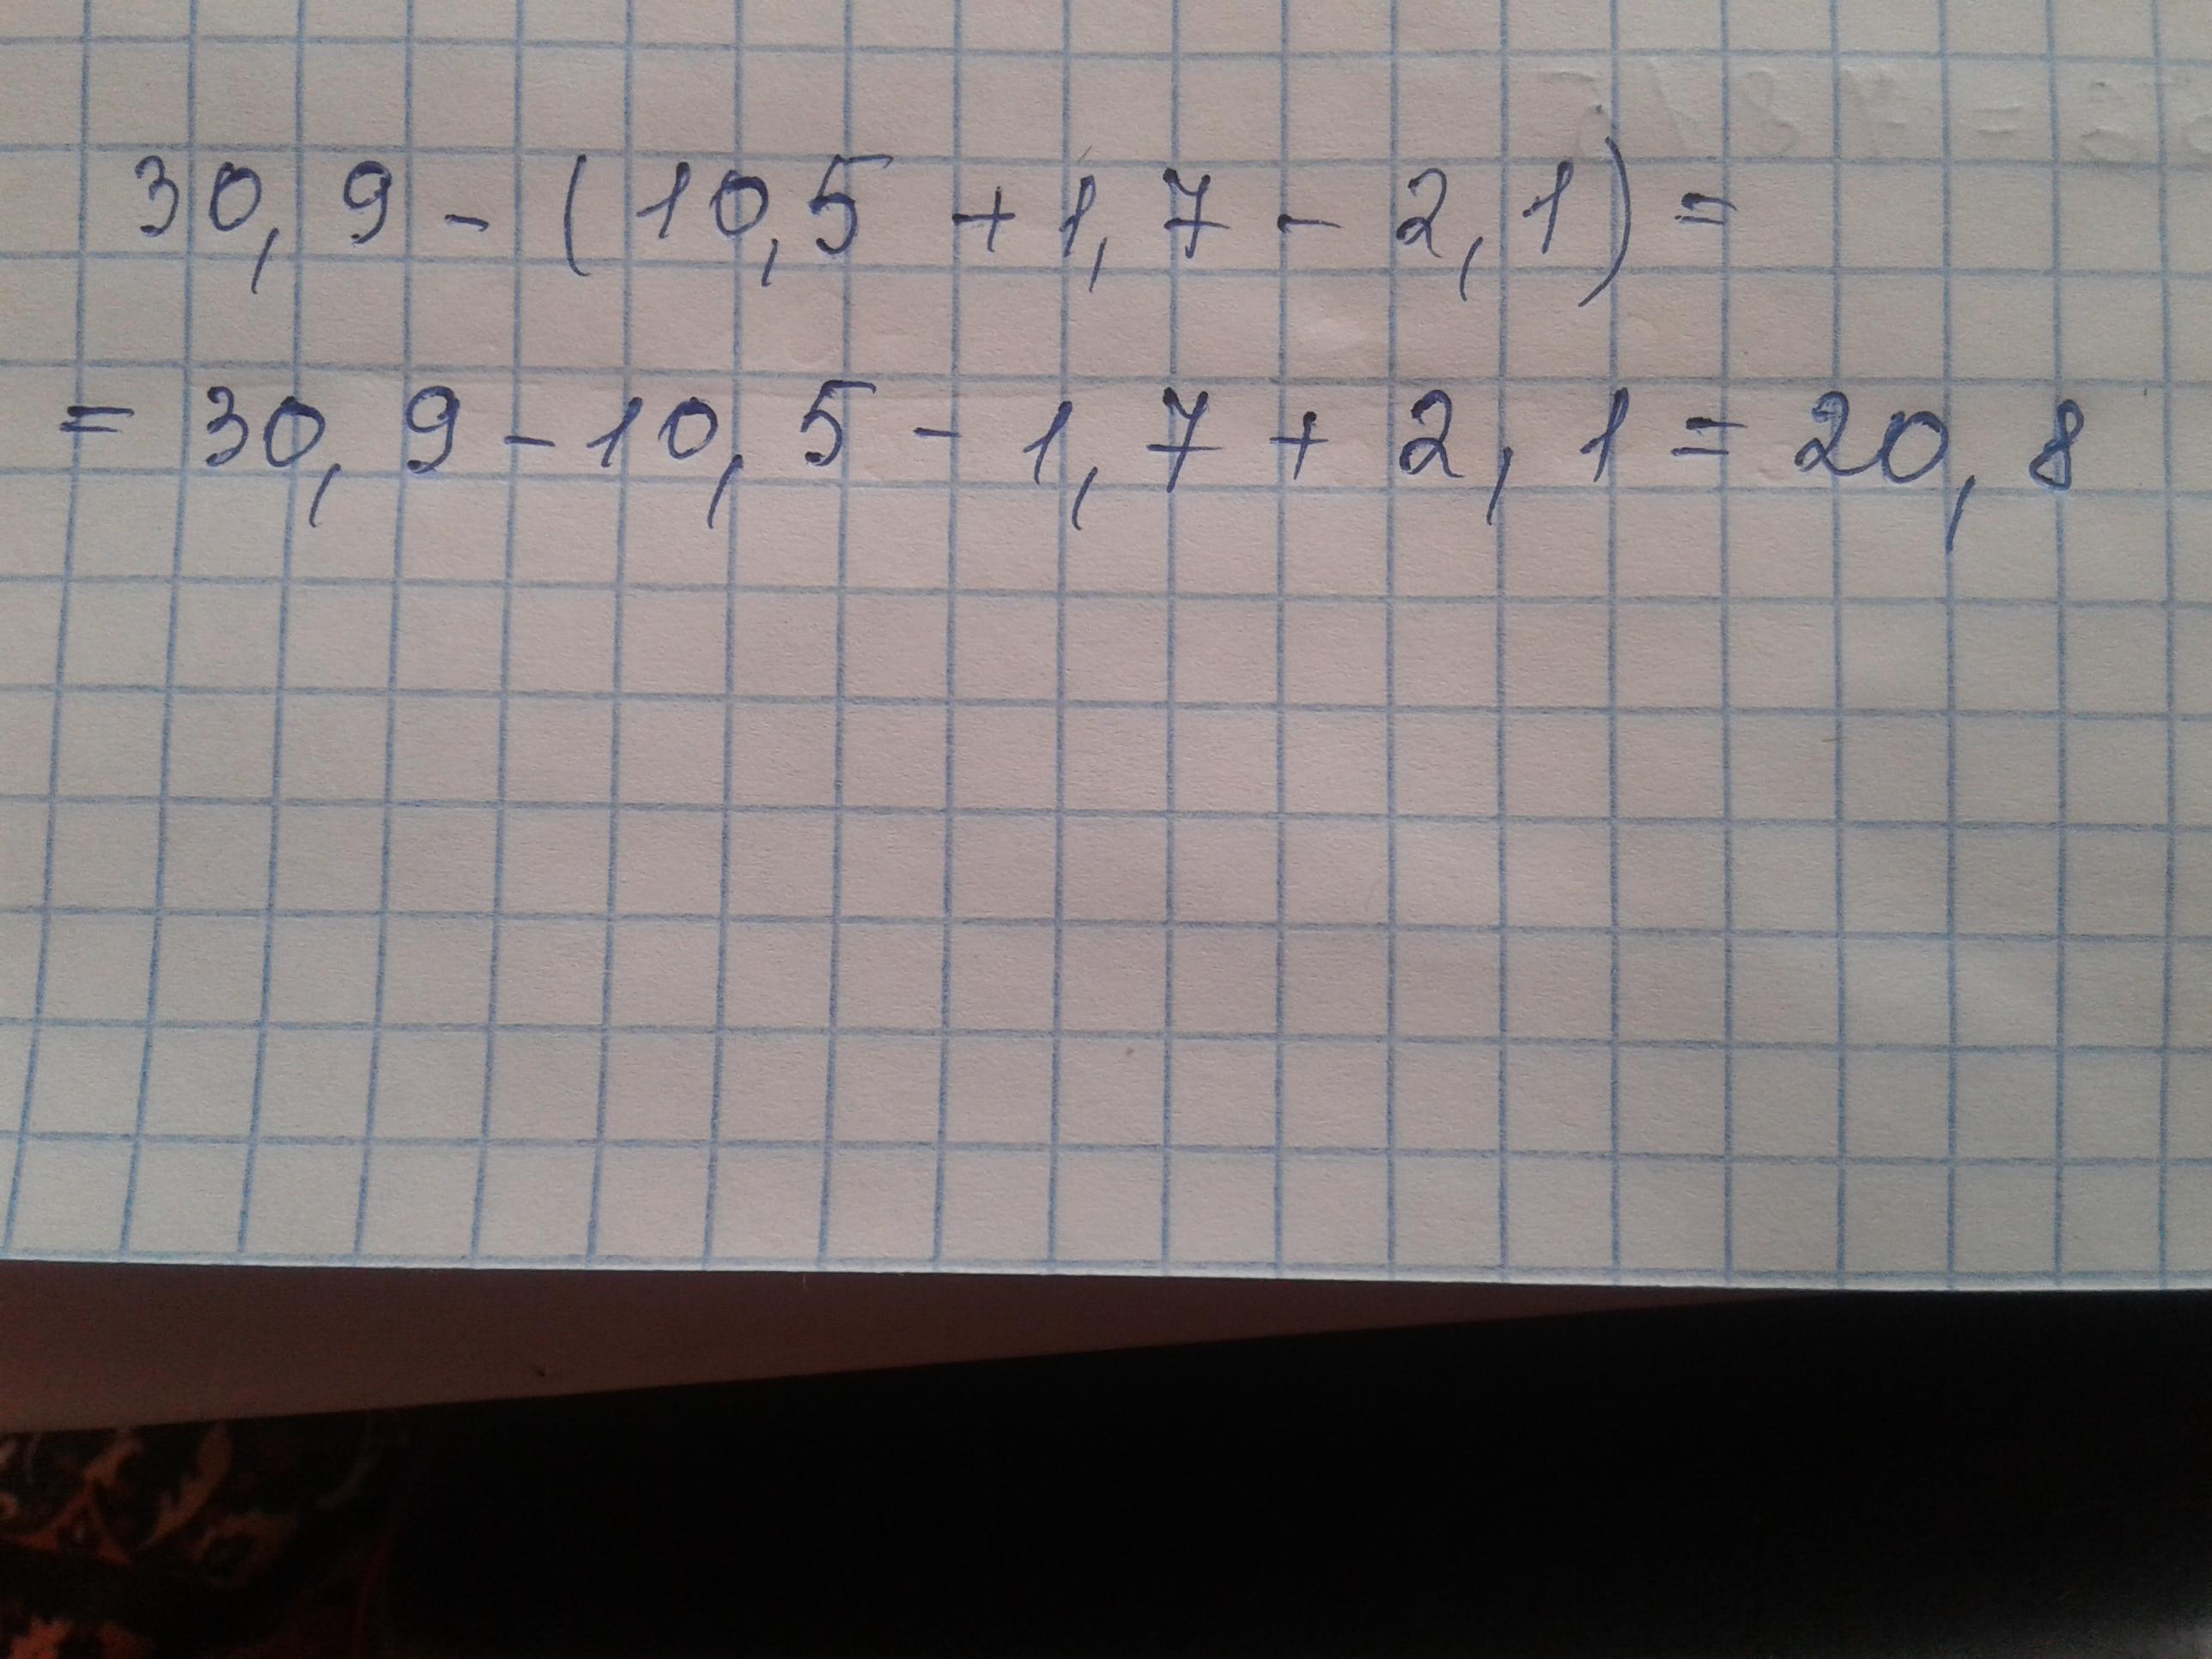 30,9 - (10,5 + 1,7 - 2,1) =
= 30,9 - 10,5 - 1,7 + 2,1 = 20,8